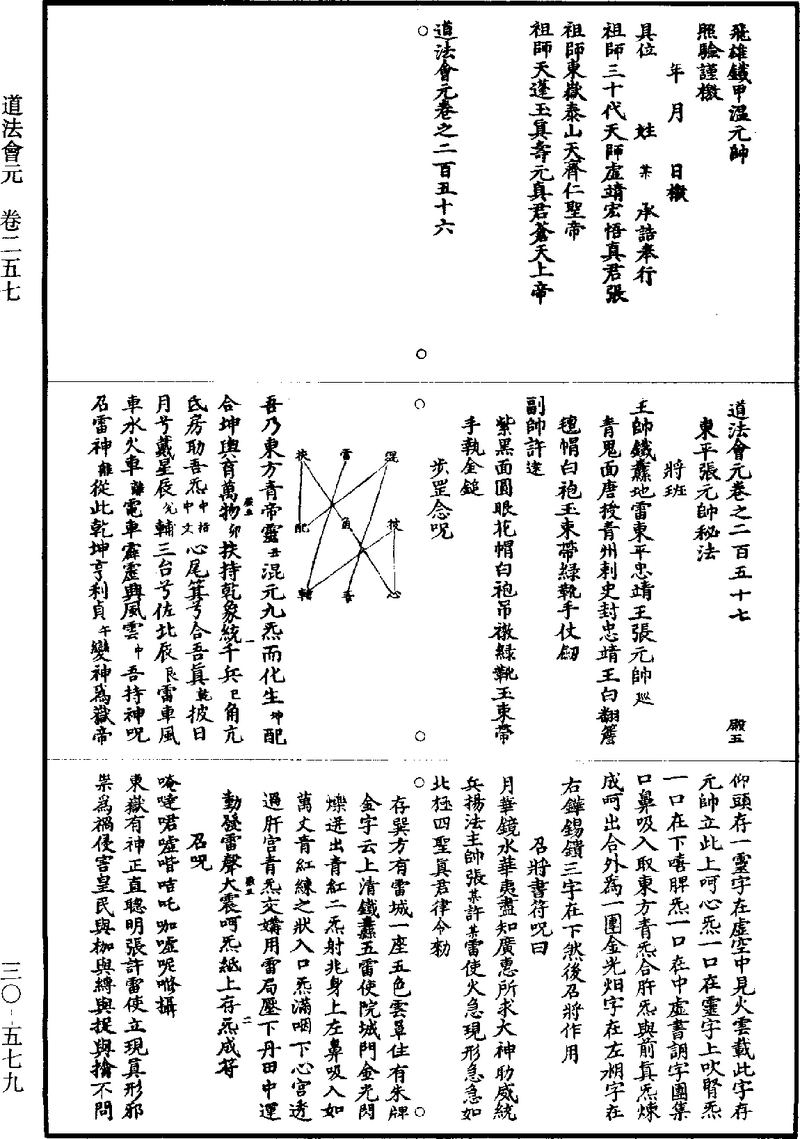 道法會元　卷二五七
三〇—五七九
飛雄鐵甲溫元帥
照驗謹檄
年　月　日檄
具位　姓　某　承誥奉行
祖師三十代天師虛靖宏悟真君張
祖師東嶽泰山天齊仁聖帝
祖師天蓬玉真壽元真君蒼天上帝
道法會元卷之二百五十六
道法會元卷之二百五十七　殿五
東平張元帥秘法
將班
主帥鐵纛地雷東平忠靖王張元帥巡
青鬼面唐授青州刺史封忠靖王白翻簷
氊帽白袍玉束帶綠靴手仗劒
副帥許遠
紫黑面圓眼花帽白袍吊襟綠靴玉束帶
手執金鎚
步罡念呪
混　雷　扶
披　角　配
心　吾　輔
吾乃東方青帝靈丑混元九炁而化生坤配
合坤輿育萬物卯扶持乾象統千兵巳角亢
氐房助吾炁中心尾箕兮合吾真乾披日
月兮戴星辰兌輔三台兮佐北辰艮雷車風
車水火車離電車霹靂興風雲中吾持神呪
召雷神離從此乾坤亨利貞午變神為嶽帝
仰頭存一靈字在虛空中見火雲載此字存
元帥立此上呵心炁一口在靈字上吹腎炁
一口在下嘻脾炁一口在中虛書字團集
口鼻吸入取東方青炁合肝炁與前真炁煉
成呵出合外為一團金光字在左字在
右錫鑽三字在下然後召將作用
召將書符呪曰
月華鏡水華夷盡知廣惠所求大神助威統
兵揚法主帥張某許某雷使火急現形急急如
北極四聖真君律令勑
存巽方有雷城一座五色雲罩住有朱牌
金字云上清鐵纛五雷使院城門金光閃
爍迸出青紅二炁射兆身上左鼻吸入如
萬丈青紅練之狀入口炁滿咽下心宮透
過肝宮青炁交媾用雷局壓下丹田中運
動發雷聲大震呵炁紙上存炁成符
召呪
唵㖿嚧喈咭吒咖嚧呢攝
東嶽有神正直聰明張許雷使立現真形邪
祟為禍侵害皇民與枷與縛與捉與擒不問